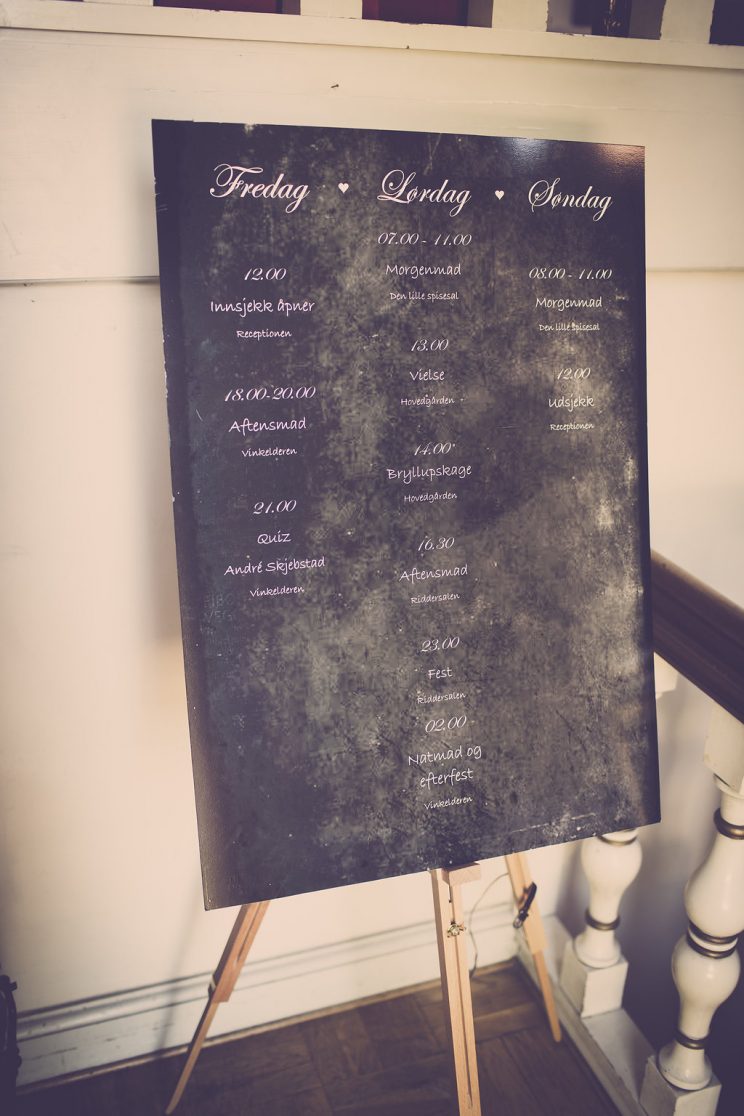 Fredag ♥ Lørdag ♥ Søndag
12.00
Innsjekk åpner
Receptionen
18.00-20.00
Aftensmad
Vinkelderen
21.00
Quiz
André Skjebstad
Vinkelderen
07.00 - 11.00
Morgenmad
Den lille spisesal
13.00
Vielse
Hovedgården
14.00
Bryllupskage
Hovedgården
16.30
Aftensmad
Riddersalen
23.00
Fest
Riddersalen
02.00
Natmad og
efterfest
Vinkelderen
08.00 - 11.00
Morgenmad
Den lille spisesal
12.00
Udsjekk
Receptionen